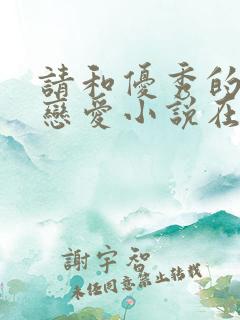 請和優秀的
戀愛小說在
謝宇智
未經同意禁止轉載